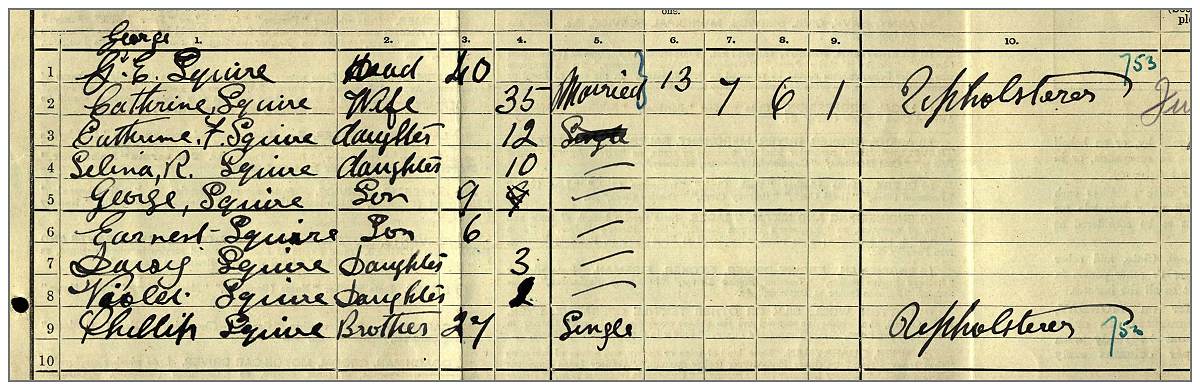 ons.
1. 2. 3. 4. 5. 6. 7. 8. 9. 10.
George
1 G. E. Squire Head 40 Married 13 7 6 1 Upholsterer 753
2 Cathrine, Squire Wife 35
3 Catherine. F. Squire daughter 12 Single
4 Selina, R. Squire daughter 10
5 George, Squire Son 9
6 Earnest Squire Son 6
7 Squire Daughter 3
8 Violet. Squire Daughter
9 Phillip Squire Brother 27 Single Upholsterer 753
10